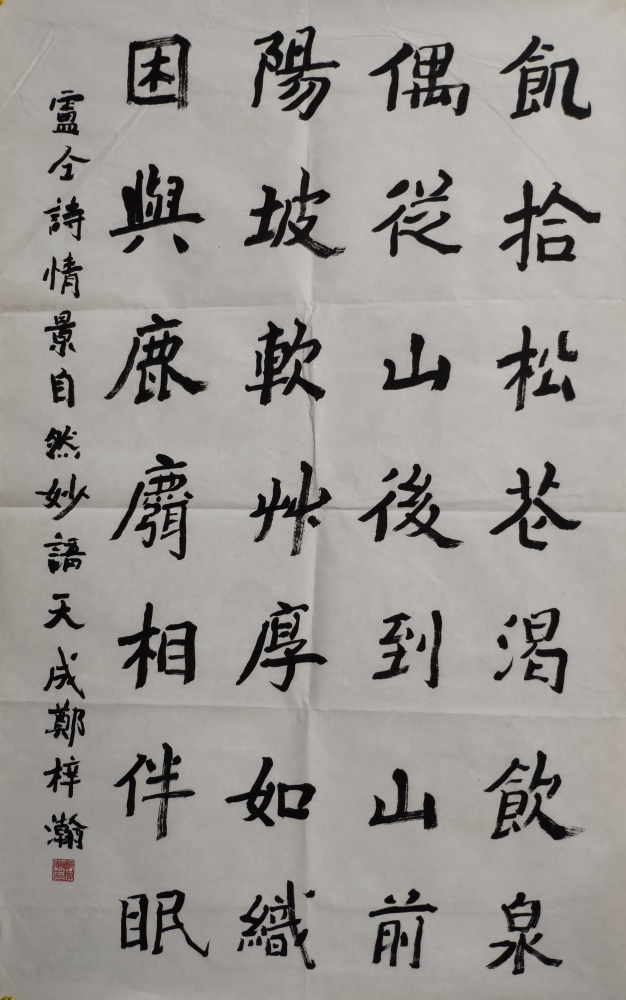 飢拾松花渴飲泉
偶從山後到山前
陽坡軟艸厚如織
困與鹿麛相伴眠
盧仝詩情景自然妙語天成鄭梓瀚